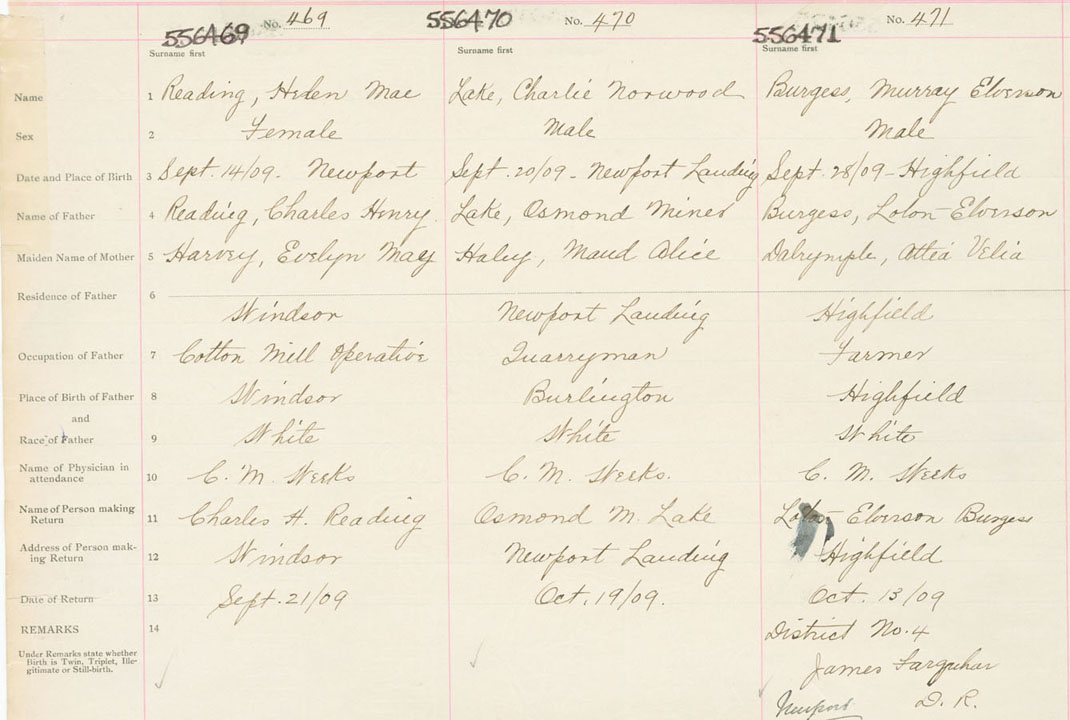 No. 469 No. 470 No. 471
556469 556470 556471
Surname first Surname first Surname first
Name 1 Reading, Helen Mae Lake, Charlie Norwood Burgess, Murray Elverson
Sex 2 Female Male Male
Date and Place of Birth 3 Sept. 14/09 - Newport Sept. 20/09 - Newport Landing Sept. 28/09 - Highfield
Name of Father 4 Reading, Charles Henry. Lake, Osmond Miner Burgess, Lolon Elverson
Maiden Name of Mother 5 Harvey, Evelyn May Haley, Maud Alice Dalrymple, Attea Velia
Residence of Father 6
Windsor Newport Landing Highfield
Occupation of Father 7 Cotton Mill Operative Quarryman Farmer
Place of Birth of Father 8 Windsor Burlington Highfield
and
Race of Father 9 White White White
Name of Physician in
attendance 10 C. M. Weeks C. M. Weeks. C. M. Weeks
Name of Person making
Return 11 Charles H. Reading Osmond M. Lake Lolon Elverson Burgess
Address of Person mak-
ing Return 12 Windsor Newport Landing Highfield
Date of Return 13 Sept. 21/09 Oct. 19/09. Oct. 13/09
REMARKS 14
District No. 4
Under Remarks state whether
Birth is Twin, Triplet, Ille-
gitimate or Still-birth.
James Farquhar
Newport D. R.